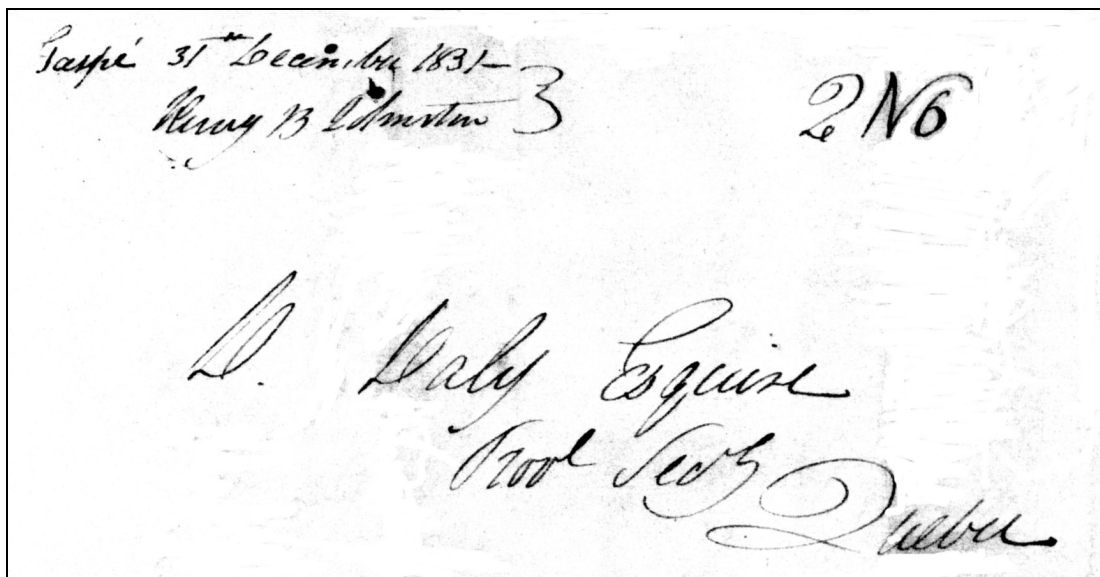 Gaspé 31st December 1831
Henry B Johnston } 2 N6
D. Daly Esquire
Provl Secy
Quebec